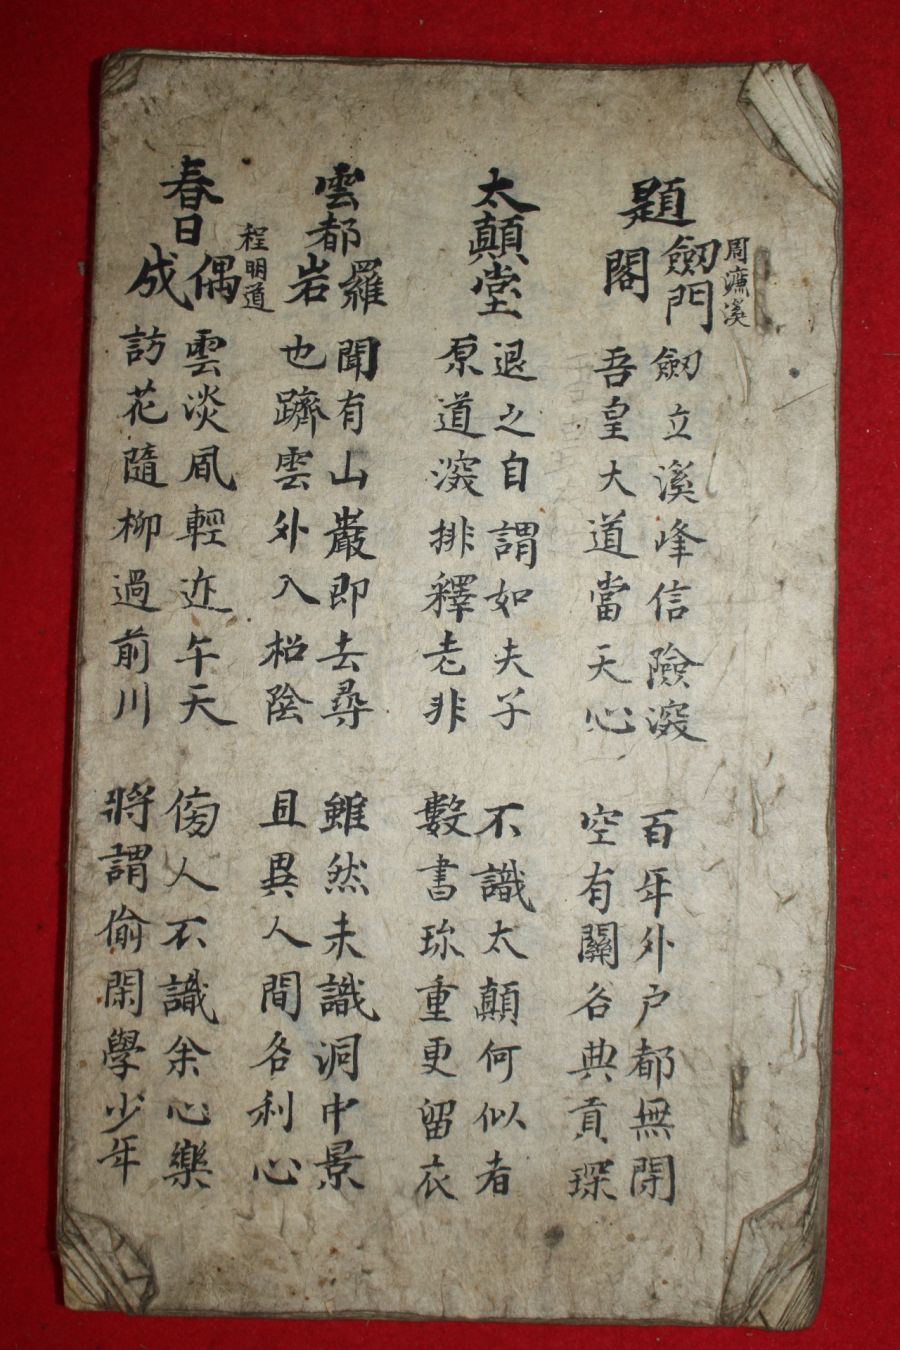 周濂溪
題劒門閣
劒立溪峰信險深
吾皇大道當天心
百年外戶都無閉
空有關名典貢琛
太顚堂
退之自謂如夫子
原道深排釋老非
不識太顚何似者
數書珍重更留衣
雲都羅岩
聞有山巖即去尋
也躋雲外入松陰
雖然未識洞中景
且異人間名利心
程明道
春日偶成
雲淡風輕近午天
訪花隨柳過前川
傍人不識余心樂
將謂偷閑學少年